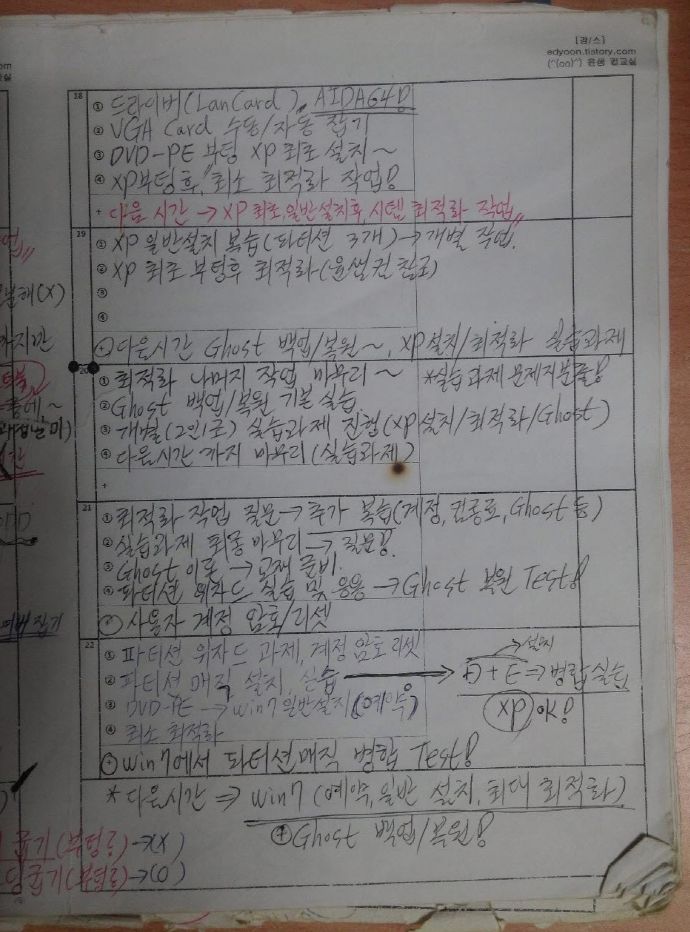 [강/소]
edyoon.tistory.com
(^(oo)^) 윤샘 컴교실
18
① 드라이버(LanCard), AIDA64!
② VGA Card 수동/자동 잡기
③ DVD-PE 부팅 XP 최초 설치~
④ XP부팅후, 최소 최적화 작업!
+ 다음 시간 → XP 최초, 일반설치후, 시스템 최적화 작업"
19
① XP 일반설치 복습(파티션 3개)→개별 작업.
② XP 최초 부팅후 최적화(윤쌤권 참고)
③
④
+ 다음시간 Ghost 백업/복원~, XP설치/최적화 실습과제
20
① 최적화 나머지 작업 마무리~ *실습과제 문제지분출!
② Ghost 백업/복원 기본 실습
③ 개별(2인1조) 실습과제 진행(XP설치/최적화/Ghost)
④ 다음시간 까지 마무리(실습과제)
+
21
① 최적화 작업 질문→추가 복습(계정, 컴종료, Ghost 등)
② 실습과제 최종 마무리→, 질문!
③ Ghost 이론 → 교재 준비.
④ 파티션 위자드 실습 및 응용 →Ghost 복원 Test!
+ 사용자 계정 암호/리셋
22
① 파티션 위자드 과제, 계정 암호 리셋
→설치
② 파티션 매직 설치, 실습 → + E⇒병합 실습
③ DVD-PE → win7 일반설치(예약)
dx OK!
④ 최소 최적화
+ win7에서 파티션매직 병합 Test!
* 다음시간 ⇒ win7 (예약, 일반 설치, 최대 최적화)
+ Ghost 백업/복원!
굽기(부팅용)→(X)
굽기(부팅용)→(O)